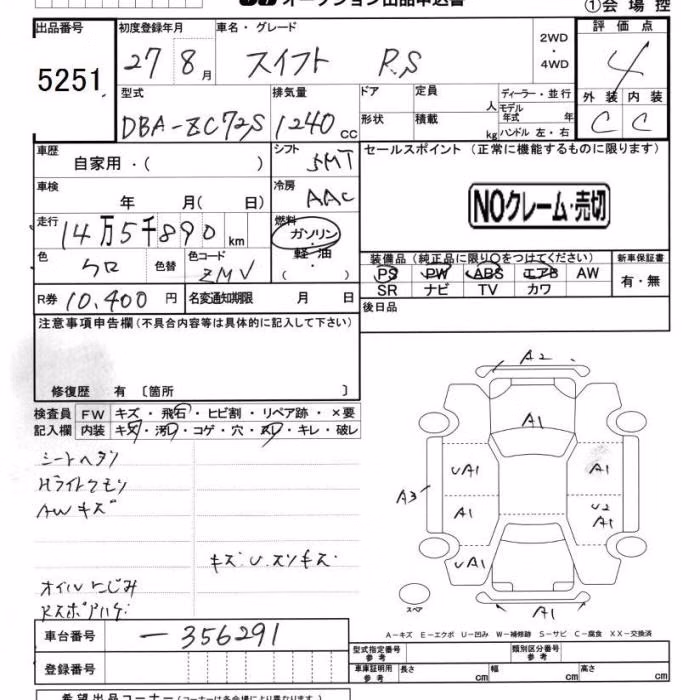 オークション出品申込書
①会場控
出品番号 5251
初度登録年月 27 8月
車名・グレード スイフト RS
2WD・4WD
評価点 4
外装 C 内装 C
型式 DBA-ZC72S
排気量 1240 cc
ドア 形状
定員 人
積載 kg
ディーラー・並行
モデル年式 年
ハンドル 左・右
車歴 自家用・( )
シフト 5MT
車検 年 月( 日)
冷房 AAC
走行 14万5千890km
燃料 ガソリン・軽油・( )
色 クロ 色替
色コード ZMV
R券 10,400円
名変通知期限 月 日
セールスポイント(正常に機能するものに限ります)
NOクレーム・売切
装備品(純正品に限り○をつけてください)
PS PW ABS エアB AW
SR ナビ TV カワ
新車保証書 有・無
後日品
注意事項申告欄(不具合内容等は具体的に記入して下さい)
修復歴 有〔箇所 〕
検査員記入欄
FW キズ・飛石・ヒビ割・リペア跡・×要
内装 キズ・汚レ・コゲ・穴・スレ・キレ・破レ
シートヘタリ
Hライトクモリ
AWキズ
キズ・U・スリキズ・
オイルにじみ
Rスポアハゲ
A2
A1
UA1
A1
A3
A1
U2
A1
UA1
A1
スペア
A-キズ E-エクボ U-凹み W-補修跡 S-サビ C-腐食 XX-交換済
車台番号 -356291
登録番号
型式指定番号 参考
類別区分番号 参考
車庫証明用 参考 長さ cm 幅 cm 高さ cm
希望出品コーナー(コーナーは各会場により異なります。)